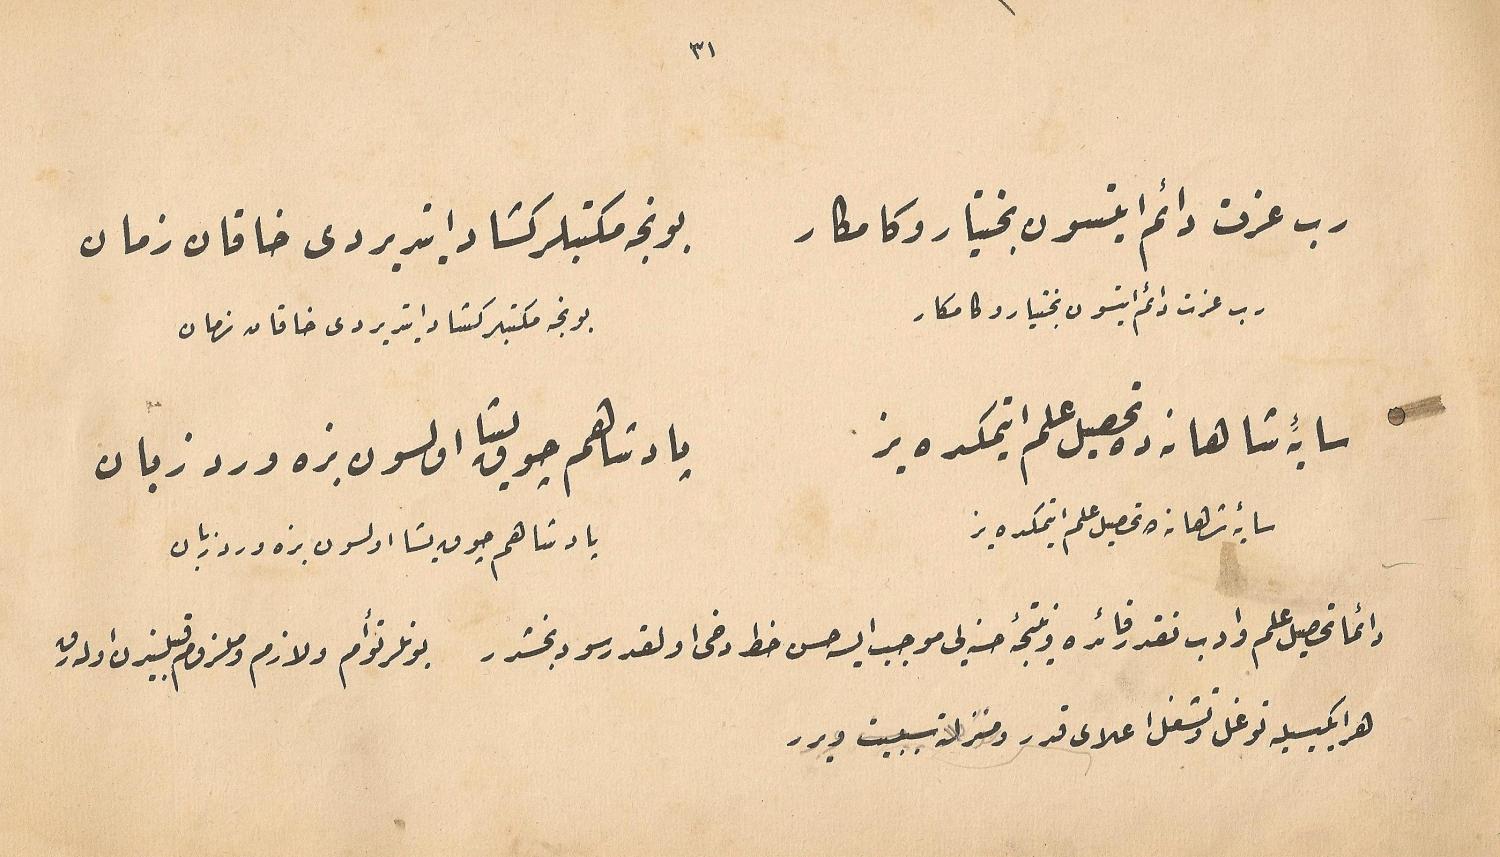 ٣١
رب عزت دائم ايتسون بختيار و كامكار بونجه مكتبلر كشاد ايتديردى خاقان زمان
رب عزت دائم ايتسون بختيار و كامكار بونجه مكتبلر كشاد ايتديردى خاقان زمان
سايۀ شاهانه ده تحصيل علم ايتمكده يز پادشاهم چوق يشا اولسون بزه ورد زبان
سايۀ شاهانه ده تحصيل علم ايتمكده يز پادشاهم چوق يشا اولسون بزه ورد زبان
دائما تحصيل علم و ادب نقدر فائده و نتيجۀ حسنه يى موجب ايسه حسن خط دخى اولقدر سودبخشدر بونلر توأم و لازم و ملزوم قبيلندن اوله رق
هر ايكيسيله توغل و تشغل اعلاى قدر و منزلته سببيت ويرر